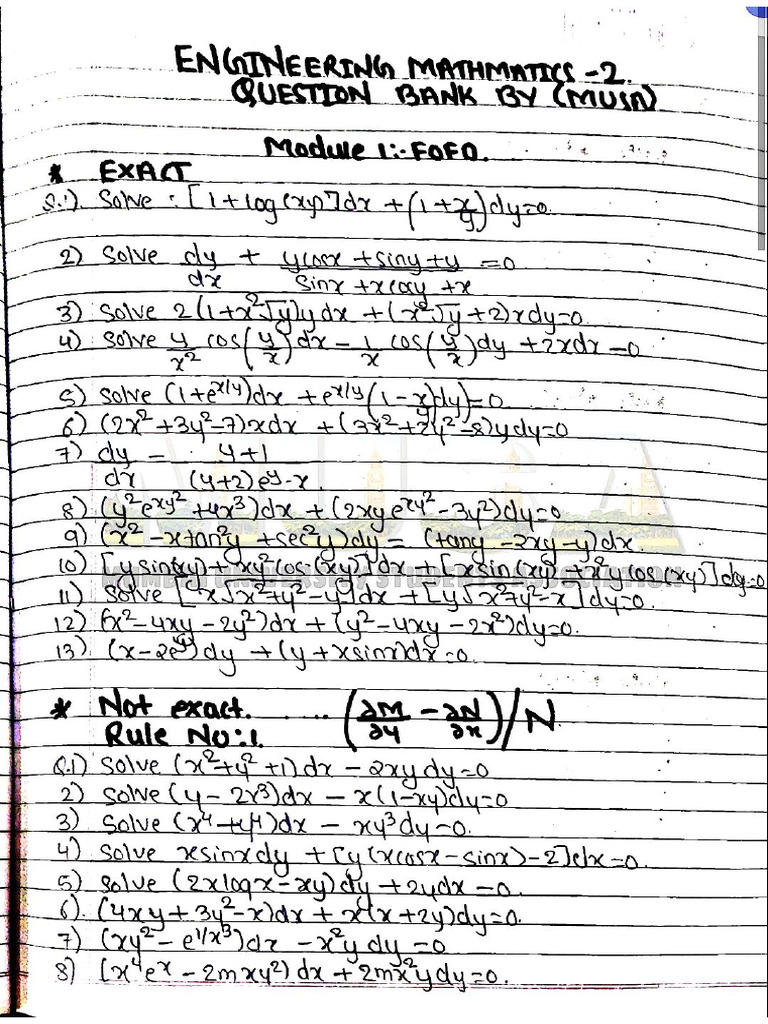 ENGINEERING MATHMATICS -2.
QUESTION BANK BY (MUSA)
Module 1:- FOFD.
* EXACT
Q.1) Solve : [1+log(xy)]dx + (1+x/y)dy=0.
2) Solve dy/dx + (ycosx+siny+y)/(sinx+xcosy+x) =0
3) Solve 2(1+x²√y)ydx + (x²√y+2)xdy=0.
4) Solve y/x² cos(y/x)dx - 1/x cos(y/x)dy + 2xdx=0
5) Solve (1+e^(x/y))dx + e^(x/y)(1-x/y)dy=0
6) (2x²+3y²-7)xdx + (3x²+2y²-8)ydy=0
7) dy/dx = (y+1)/((y+2)e^y-x)
8) (y²e^(xy²)+4x³)dx + (2xye^(xy²)-3y²)dy=0
9) (x²-xtan²y+sec²y)dy = (tany-2xy-y)dx.
10) [ysin(xy)+xy²cos(xy)]dx + [xsin(xy)+x²ycos(xy)]dy=0
MUMBAI UNIVERSITY STUDENTS ASSOCIATION
11) Solve [x√x²+y²-y]dx + [y√x²+y²-x]dy=0.
12) (x²-4xy-2y²)dx + (y²-4xy-2x²)dy=0.
13) (x-2e^y)dy + (y+xsinx)dx=0.
* Not exact. .... (∂M/∂y - ∂N/∂x)/N
Rule No:1.
Q.1) Solve (x²+y²+1)dx - 2xydy=0
2) Solve (y-2x³)dx - x(1-xy)dy=0
3) Solve (x⁴+y⁴)dx - xy³dy=0.
4) Solve xsinxdy + [y(xcosx-sinx)-2]dx=0.
5) Solve (2xlogx-xy)dy + 2ydx=0.
6) (4xy+3y²-x)dx + x(x+2y)dy=0.
7) (xy²-e^(1/x³))dx - x²ydy=0
8) (x⁴e^x - 2mxy²)dx + 2mx²ydy=0.